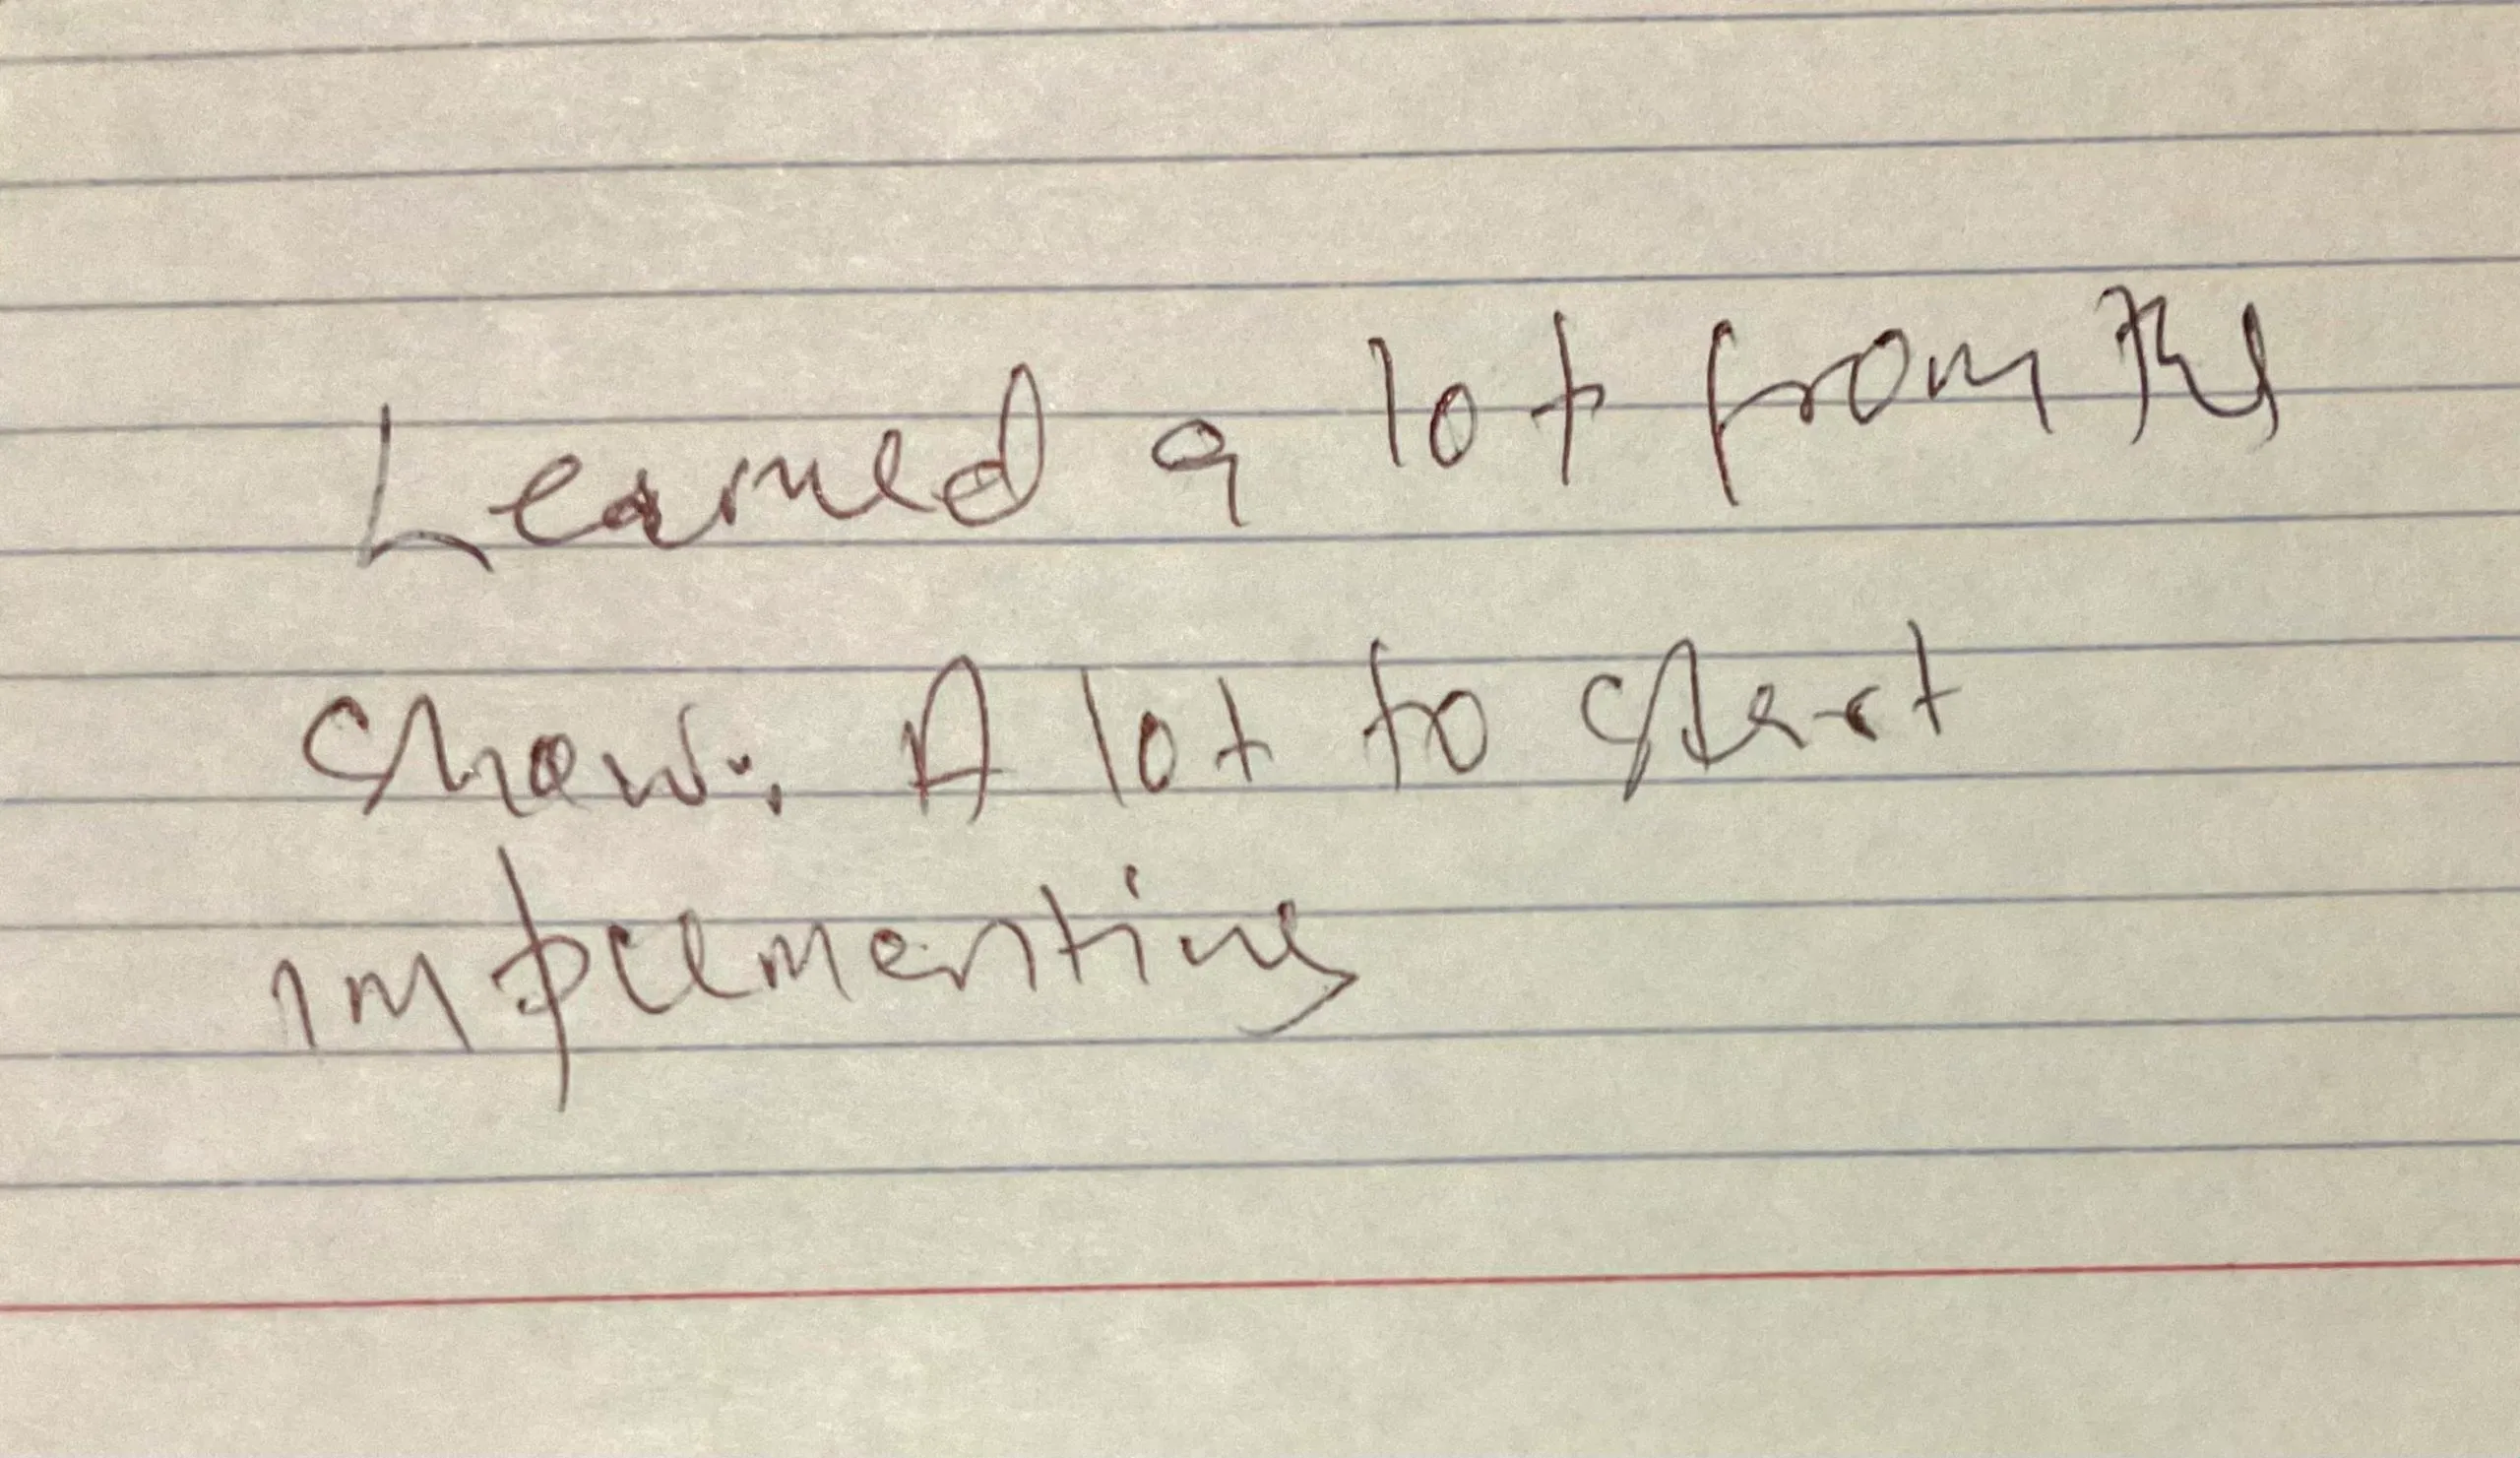 Learned a lot from this
show. A lot to start
implementing